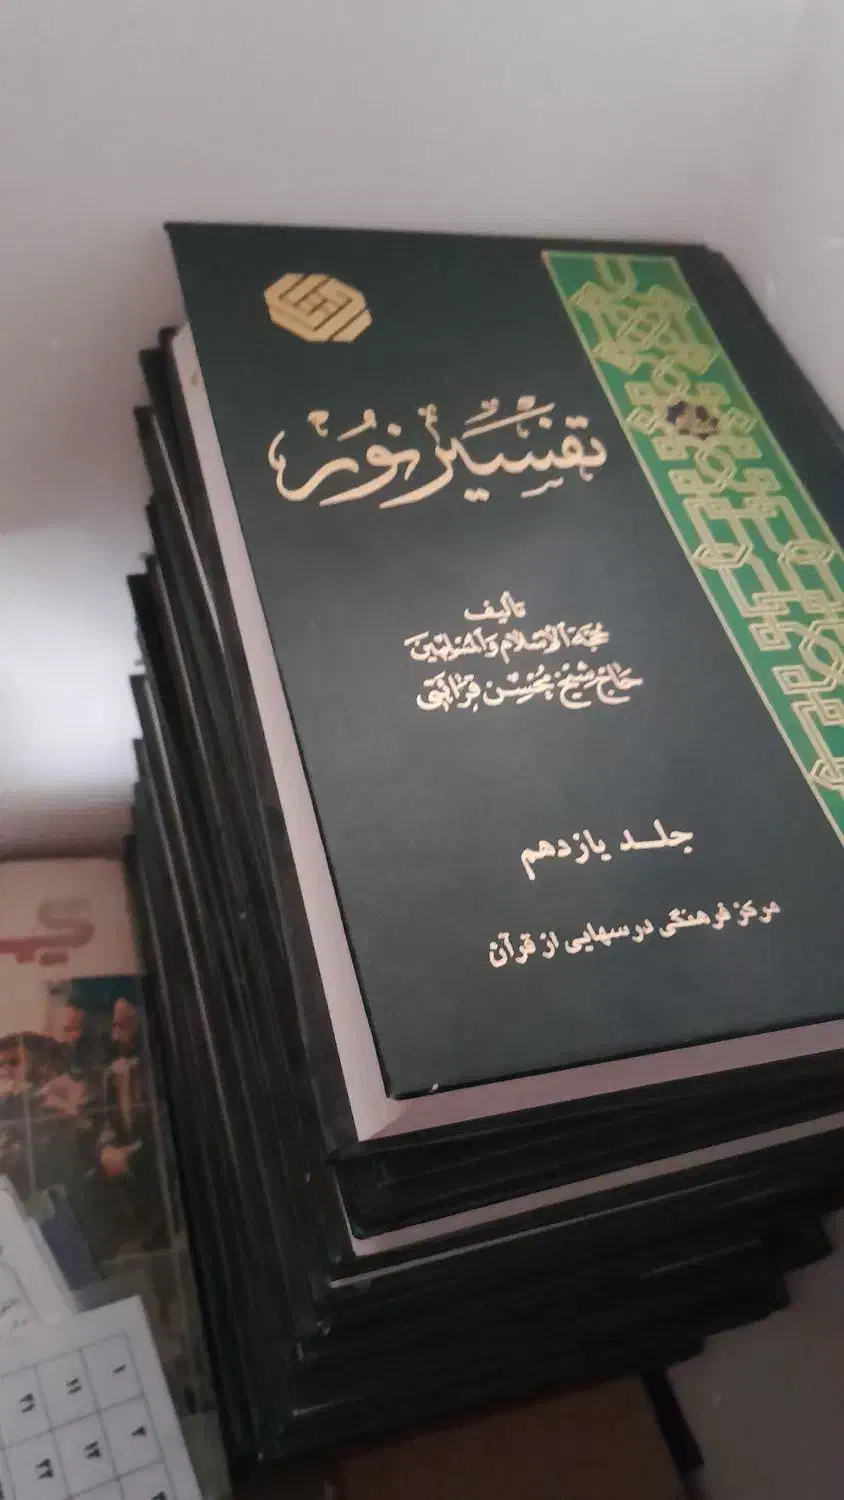 تفسیر نور
تألیف
حجة الاسلام والمسلمین
حاج شیخ محسن قرائتی
جلد یازدهم
مرکز فرهنگی درسهایی از قرآن
۱ ۱۱ ۲۱
۲ ۱۲ ۲۲